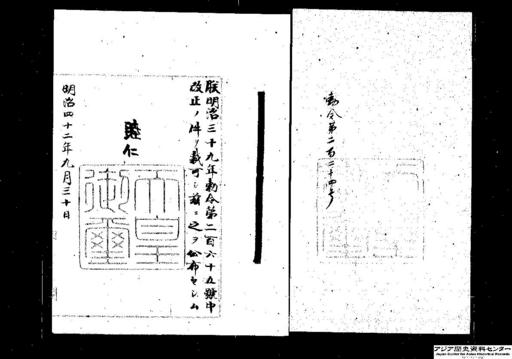 勅令第二百二十四号
朕明治三十九年勅令第二百六十五號中
改正ノ件ヲ裁可シ茲ニ之ヲ公布セシム
睦仁
天皇
御璽
明治四十二年九月三十日
アジア歴史資料センター
Japan Center for Asian Historical Records